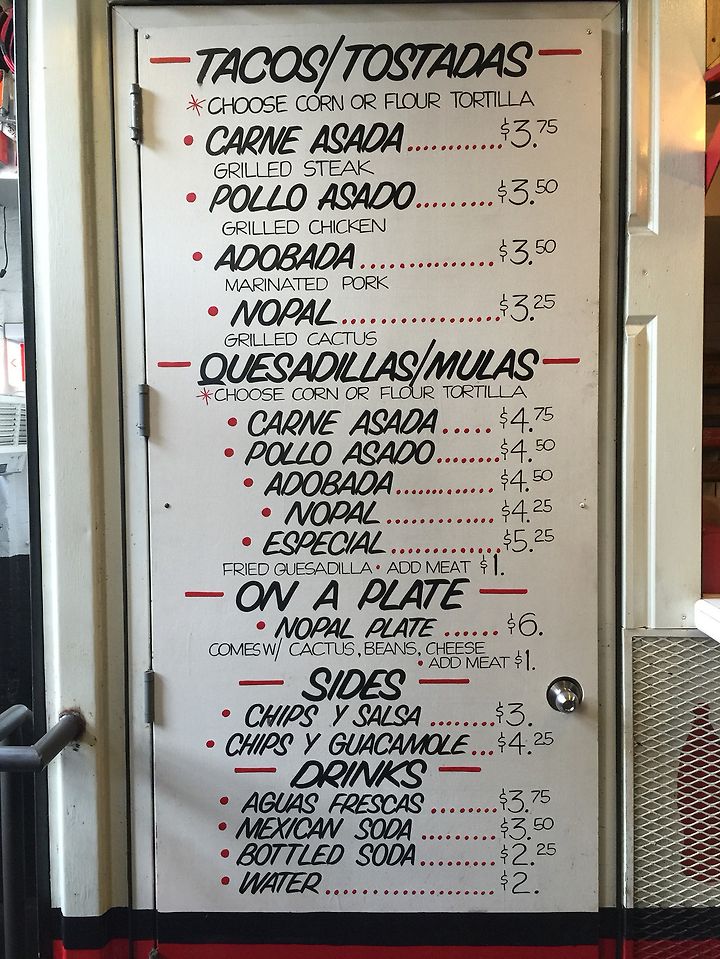 TACOS/TOSTADAS
*CHOOSE CORN OR FLOUR TORTILLA
• CARNE ASADA............$3.75
GRILLED STEAK
• POLLO ASADO.........$3.50
GRILLED CHICKEN
• ADOBADA...............$3.50
MARINATED PORK
• NOPAL.................$3.25
GRILLED CACTUS
QUESADILLAS/MULAS
*CHOOSE CORN OR FLOUR TORTILLA
• CARNE ASADA.....$4.75
• POLLO ASADO........$4.50
• ADOBADA............$4.50
• NOPAL..............$4.25
• ESPECIAL..............$5.25
FRIED QUESADILLA • ADD MEAT $1.
ON A PLATE
• NOPAL PLATE ......$6.
COMES W/ CACTUS, BEANS, CHEESE
• ADD MEAT $1.
SIDES
• CHIPS Y SALSA ........$3.
• CHIPS Y GUACAMOLE...$4.25
DRINKS
• AGUAS FRESCAS ........$3.75
• MEXICAN SODA .........$3.50
• BOTTLED SODA.........$2.25
• WATER......................$2.